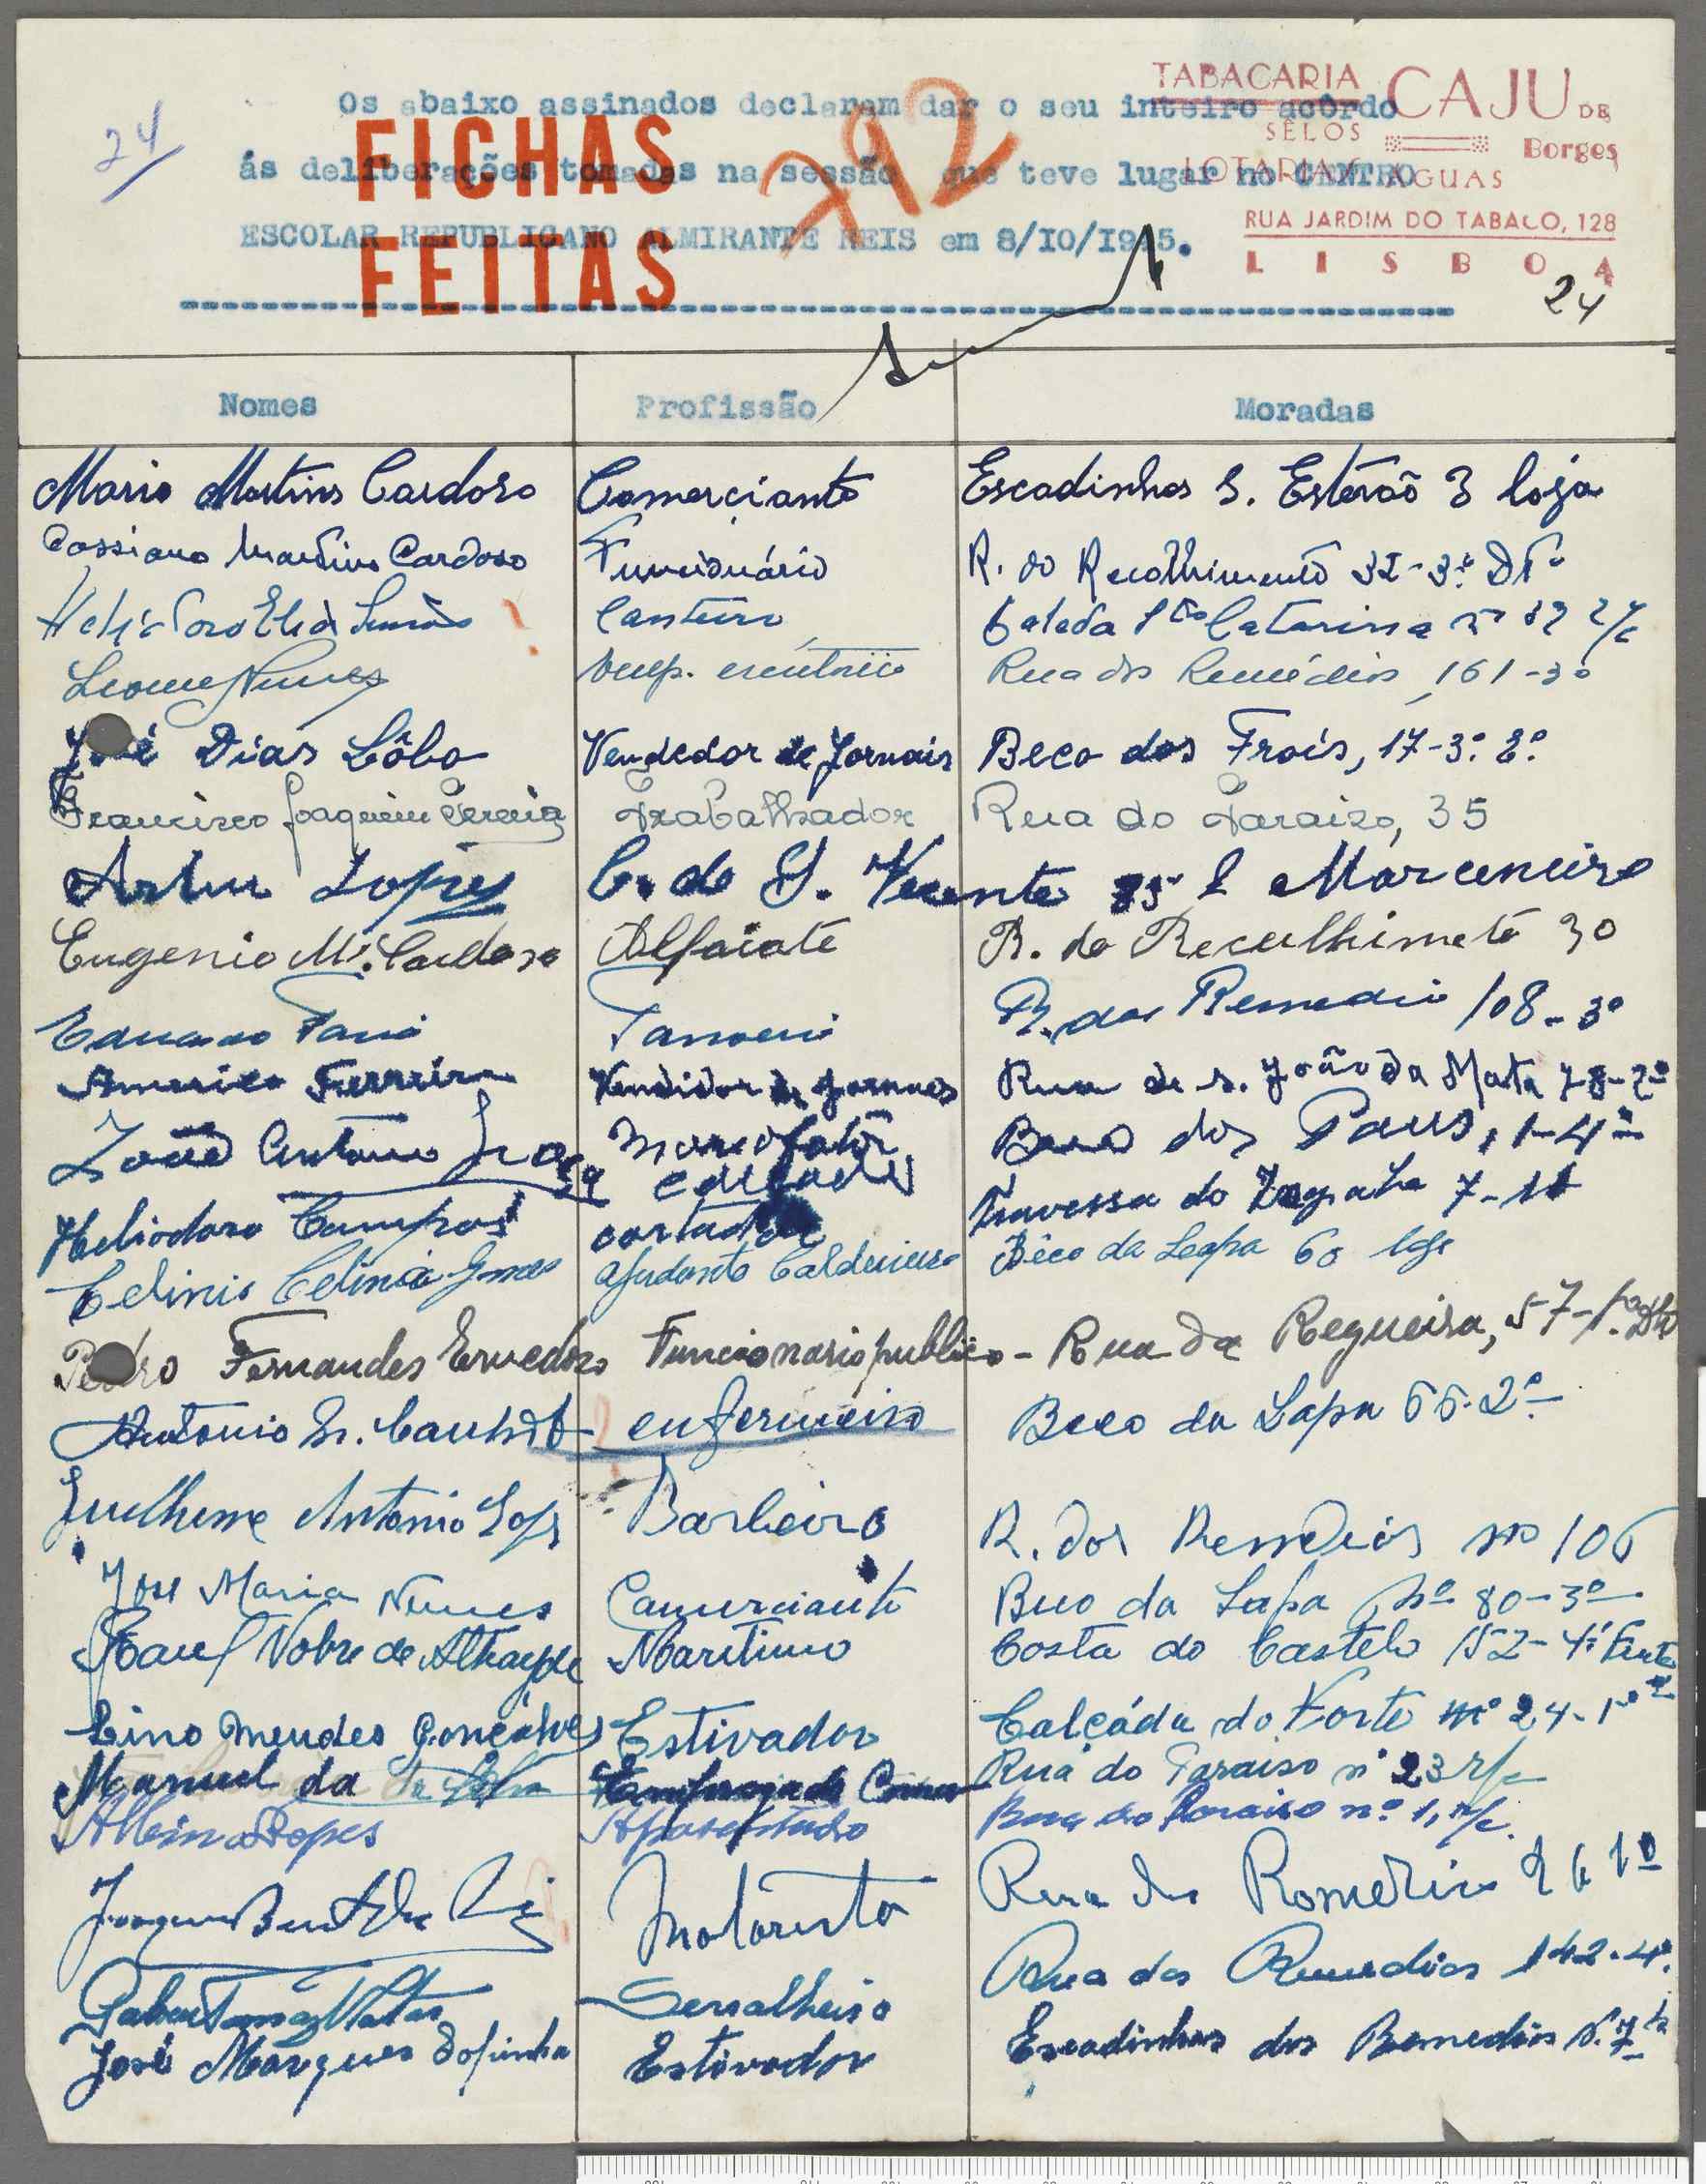 24
Os abaixo assinados declaram dar o seu inteiro acôrdo
ás deliberações tomadas na sessão que teve lugar no CENTRO
ESCOLAR REPUBLICANO ALMIRANTE REIS em 8/IO/I945.
FICHAS
FEITAS
292
TABACARIA CAJU DE
SÊLOS Borges
LOTARIAS AGUAS
RUA JARDIM DO TABACO, 128
LISBOA
24
Nomes Profissão Moradas
Mario Martins Cardoso Comerciante Escadinhas S. Estevão 3 loja
Cassiano Martins Cardoso Funcionário R. do Recolhimento 32-3º Dtº
Canteiro Calçada Stª Catarina r/c
Nunes Emp. escritório Rua dos Remédios, 161-3º
José Dias Lôbo Vendedor de Jornais Beco dos Frois, 17-3º E.º
Francisco Joaquim Pereira Trabalhador Rua do Paraizo, 35
Artur Lopes C. de S. Vicente Marceneiro
Eugenio M. Cardoso Alfaiate R. do Reculhimeto 30
Eduardo Faria Tanoeiro R. dos Remedio 108-3º
Americo Ferreira Vendidor de Jornaes Rua de S. João da Mata 78-2º
João Antonio dos Paus, 1-4º
Heliodoro Campos cortador Travessa do 7-
Celinio Ajudante Caldeireiro Bêco da Lapa 60 loja
Pedro Fernandes Ervedoso Funcionario publico - Rua da Regueira, 57-1º Dtº
Antonio enfermeiro Beco da Lapa 66-2º
Guilherme Antonio Lopes Barbeiro R. dos Remedios nº 106
José Maria Nunes Comerciante Beco da Lapa, nº 80-3º
Raul Nobre de Athayde Maritimo Costa do Castelo 152-4º Frente
Lino Mendes Gonçalves Estivador Calçáda do Forte nº 24-1º
Manuel da Silva Rua do Paraiso nº 23 r/c
Albino Lopes Aposentado Rua do Paraiso nº 1, r/c.
Joaquim Motorista Rua dos 1º
Matos Serralheiro Rua dos Remedios 142-4º
José Marques Estivador Escadinhas dos Remedios